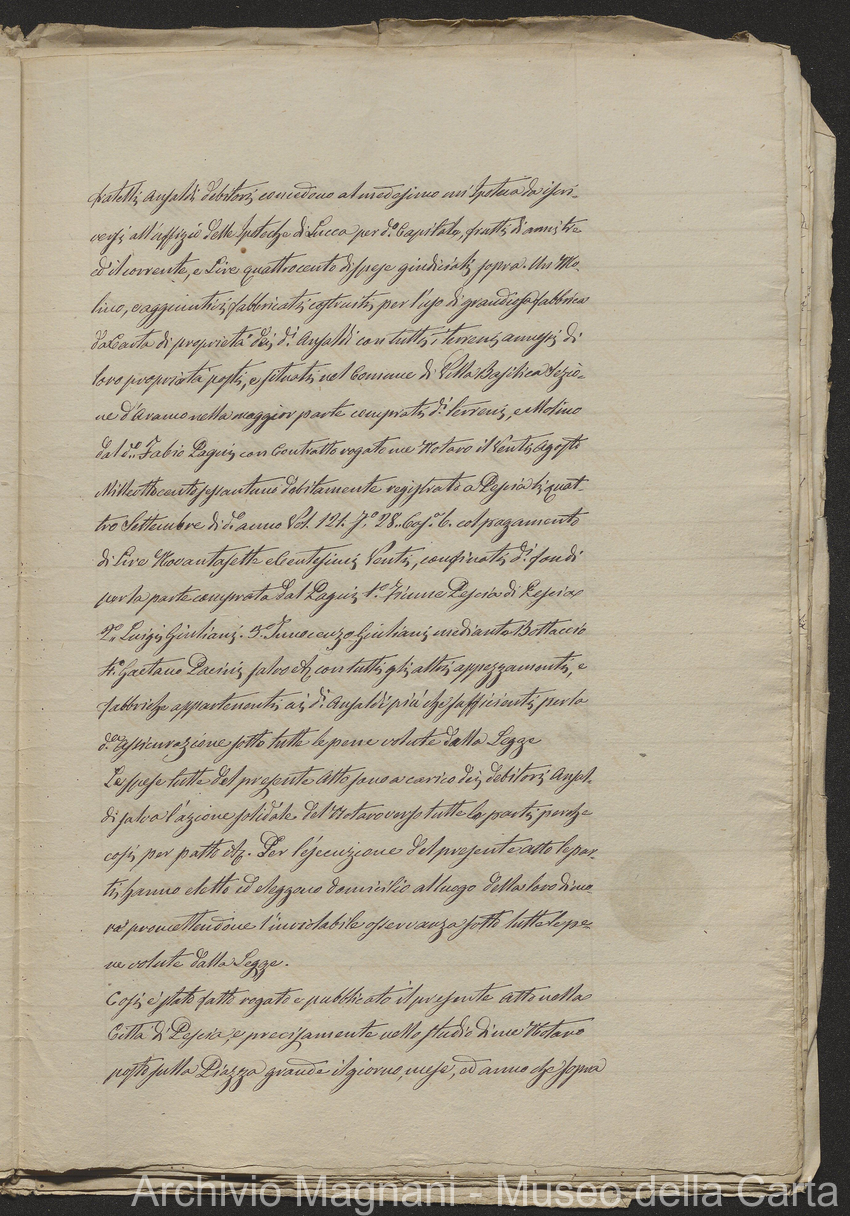 fratelli Ansaldi debitori concedono al medesimo un'Ipoteca da iscri-
versi all'Uffizio delle Ipoteche di Lucca per d.o Capitale, frutti di anni tre
ed il corrente, e Lire quattrocento di spese giudiciali sopra. Un Mo-
lino, e aggiuntivi fabbricati costruiti per l'uso di grandiosa fabbrica
da Carta di proprietà dei d.i Ansaldi con tutti i terreni annessi di
loro proprietà posti, e situati nel Comune di Villa Basilica Sezio-
ne d'Aramo nella maggior parte comprati d.i terreni, e Molino
dal Fabio Pagni con Contratto rogato me Notaro il Venti Agosto
Milleottocentosessantuno debitamente registrato a Pescia li quat-
tro Settembre di d.o anno Vol. 121. f.o 28. Cas.a 6. col pagamento
di Lire Novantasette e Centesimi Venti, confinati d.i fondi
per la parte comprata dal Pagni 1.o Fiume Pescia di Pescia
2.o Luigi Giuliani. 3.o Innocenzo Giuliani mediante Bottaccio
4.o Gaetano Pacini salvo &. con tutti gli altri appezzamenti, e
fabbriche appartenenti ai d.i Ansaldi più che sufficienti per la
d.a assicurazione sotto tutte le pene volute dalla Legge
Le spese tutte del presente Atto sono a carico dei debitori Ansal-
di salva l'azione solidale del Notaro verso tutte le parti perche
così per patto &. Per l'esecuzione del presente atto le par-
ti hanno eletto ed eleggono domicilio al luogo della loro dimo-
ra promettendone l'inviolabile osservanza sotto tutte le pe-
ne volute dalla Legge.
Così è stato fatto rogato e pubblicato il presente Atto nella
Città di Pescia, e precisamente nello studio di me Notaro
posto sulla Piazza grande il giorno, mese, ed anno che sopra
Archivio Magnani - Museo della Carta